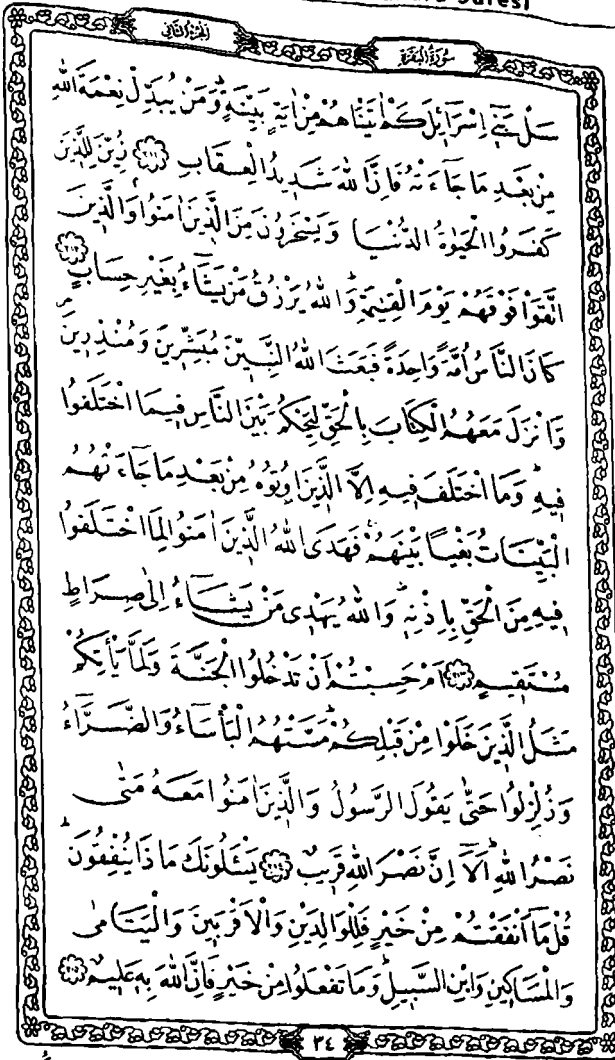 Suresi
الجزء الثاني
سورة البقرة
سَلْ بَنٖٓي اِسْرَٓائٖلَ كَمْ اٰتَيْنَاهُمْ مِنْ اٰيَةٍ بَيِّنَةٍؕ وَمَنْ يُبَدِّلْ نِعْمَةَ اللّٰهِ
مِنْ بَعْدِ مَا جَٓاءَتْهُ فَاِنَّ اللّٰهَ شَدٖيدُ الْعِقَابِ ﴿٢١١﴾ زُيِّنَ لِلَّذٖينَ
كَفَرُوا الْحَيٰوةُ الدُّنْيَا وَيَسْخَرُونَ مِنَ الَّذٖينَ اٰمَنُواۘ وَالَّذٖينَ
اتَّقَوْا فَوْقَهُمْ يَوْمَ الْقِيٰمَةِؕ وَاللّٰهُ يَرْزُقُ مَنْ يَشَٓاءُ بِغَيْرِ حِسَابٍ ﴿٢١٢﴾
كَانَ النَّاسُ اُمَّةً وَاحِدَةً فَبَعَثَ اللّٰهُ النَّبِيّٖنَ مُبَشِّرٖينَ وَمُنْذِرٖينَ
وَاَنْزَلَ مَعَهُمُ الْكِتَابَ بِالْحَقِّ لِيَحْكُمَ بَيْنَ النَّاسِ فٖيمَا اخْتَلَفُوا
فٖيهِؕ وَمَا اخْتَلَفَ فٖيهِ اِلَّا الَّذٖينَ اُو۫تُوهُ مِنْ بَعْدِ مَا جَٓاءَتْهُمُ
الْبَيِّنَاتُ بَغْياً بَيْنَهُمْۚ فَهَدَى اللّٰهُ الَّذٖينَ اٰمَنُوا لِمَا اخْتَلَفُوا
فٖيهِ مِنَ الْحَقِّ بِاِذْنِهٖؕ وَاللّٰهُ يَهْدٖي مَنْ يَشَٓاءُ اِلٰى صِرَاطٍ
مُسْتَقٖيمٍ ﴿٢١٣﴾ اَمْ حَسِبْتُمْ اَنْ تَدْخُلُوا الْجَنَّةَ وَلَمَّا يَأْتِكُمْ
مَثَلُ الَّذٖينَ خَلَوْا مِنْ قَبْلِكُمْؕ مَسَّتْهُمُ الْبَأْسَٓاءُ وَالضَّرَّٓاءُ
وَزُلْزِلُوا حَتّٰى يَقُولَ الرَّسُولُ وَالَّذٖينَ اٰمَنُوا مَعَهُ مَتٰى
نَصْرُ اللّٰهِؕ اَلَٓا اِنَّ نَصْرَ اللّٰهِ قَرٖيبٌ ﴿٢١٤﴾ يَسْـَٔلُونَكَ مَاذَا يُنْفِقُونَؕ
قُلْ مَٓا اَنْفَقْتُمْ مِنْ خَيْرٍ فَلِلْوَالِدَيْنِ وَالْاَقْرَبٖينَ وَالْيَتَامٰى
وَالْمَسَاكٖينِ وَابْنِ السَّبٖيلِؕ وَمَا تَفْعَلُوا مِنْ خَيْرٍ فَاِنَّ اللّٰهَ بِهٖ عَلٖيمٌ ﴿٢١٥﴾
٣٤